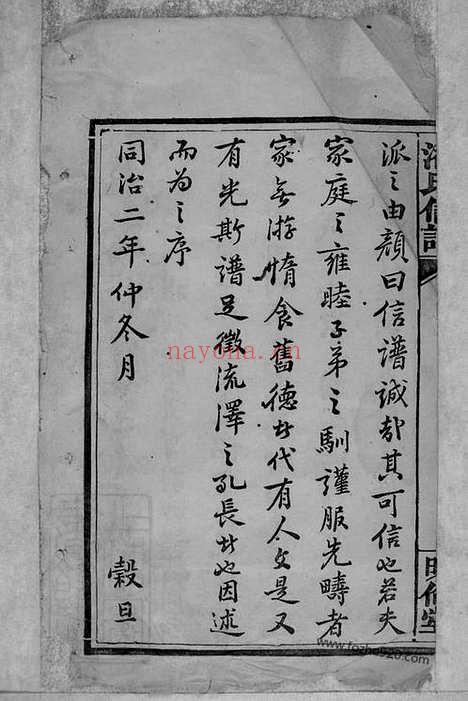 派之由顏曰信譜誠哉其可信也若夫
家庭之雍睦子弟之馴謹服先疇者
家無游惰食舊德者代有人文是又
有光斯譜足徵流澤之孔長者也因述
而为之序
同治二年仲冬月 榖旦
氏信譜
nayona.cn
www.fozhu920.com